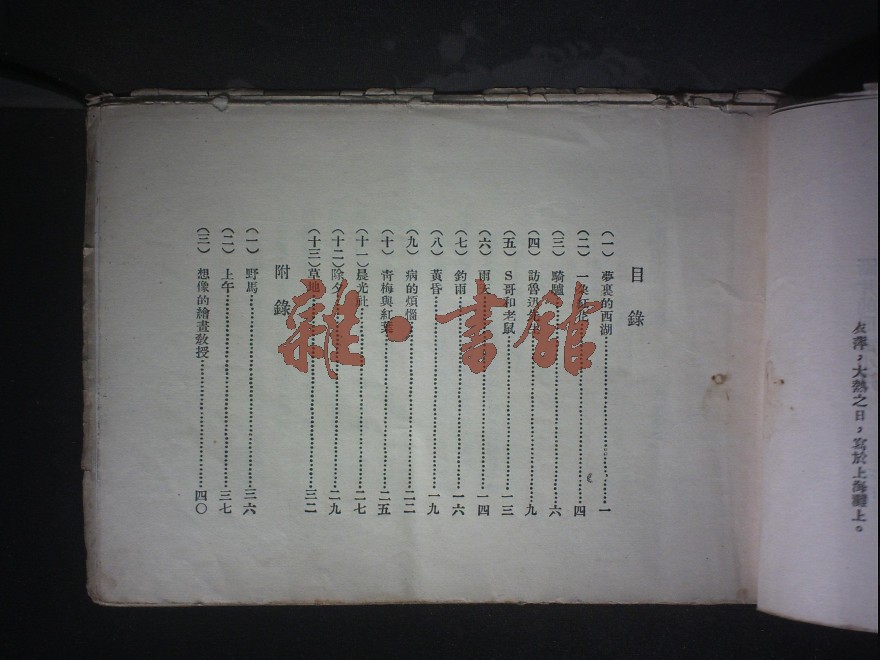 友萍，大熱之日，寫於上海灘上。
目錄
（一）夢裏的西湖……一
（二）一朶紅花……四
（三）騎驢……六
（四）訪魯汎先生……九
（五）S哥和老鼠……一三
（六）雨天……一四
（七）釣雨……一六
（八）黃昏……一九
（九）病的煩惱……二二
（十）青梅與紅葉……二五
（十一）晨光社……二七
（十二）除夕……二九
（十三）墓地……三二
附錄
（一）野馬……三六
（二）上午……三七
（三）想像的繪畫敎授……四〇
雜·書館